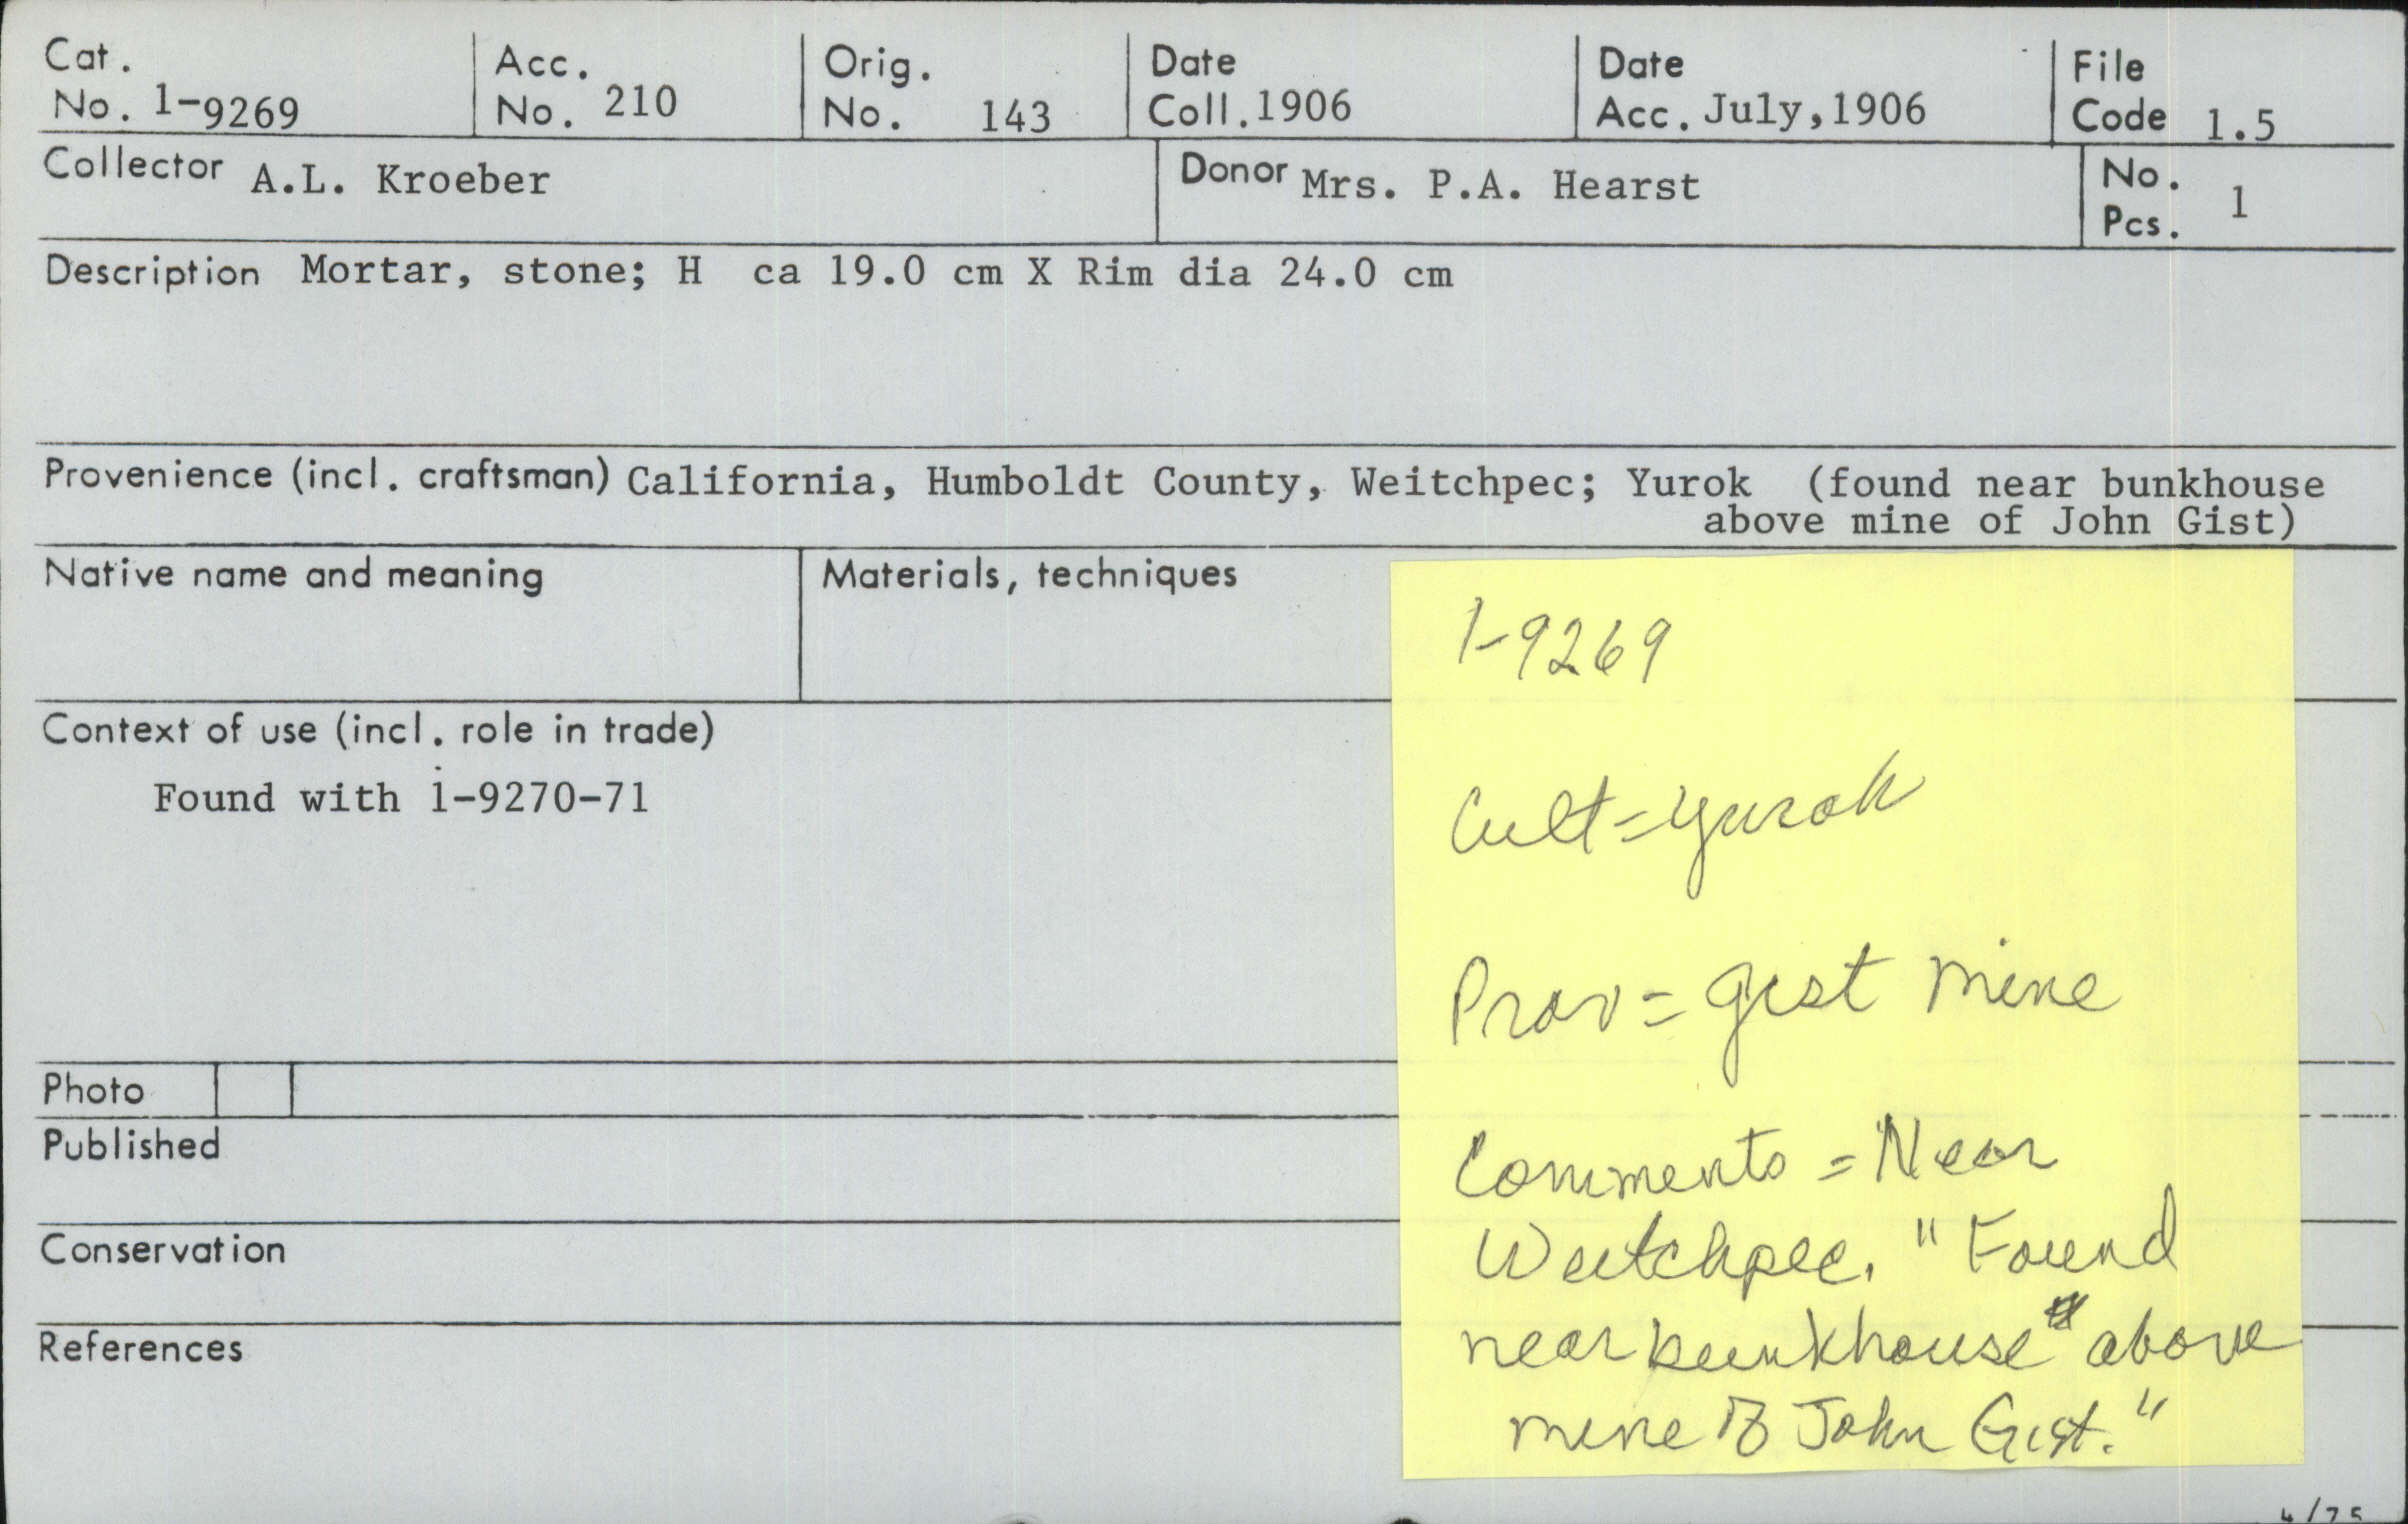 Cat. No. 1-9269
Acc. No. 210
Orig. No. 143
Date Coll. 1906
Date Acc. July, 1906
File Code 1.5
Collector A.L. Kroeber
Donor Mrs. P.A. Hearst
No. Pcs. 1
Description Mortar, stone; H ca 19.0 cm X Rim dia 24.0 cm
Provenience (incl. craftsman) California, Humboldt County, Weitchpec; Yurok (found near bunkhouse
above mine of John Gist)
Native name and meaning
Materials, techniques
Context of use (incl. role in trade)
Found with 1-9270-71
Photo
Published
Conservation
References
1-9269
Cult = Yurok
Prov = Gist Mine
Comments = Near
Weitchpec. "Found
near bunkhouse above
mine of John Gist."
4/75